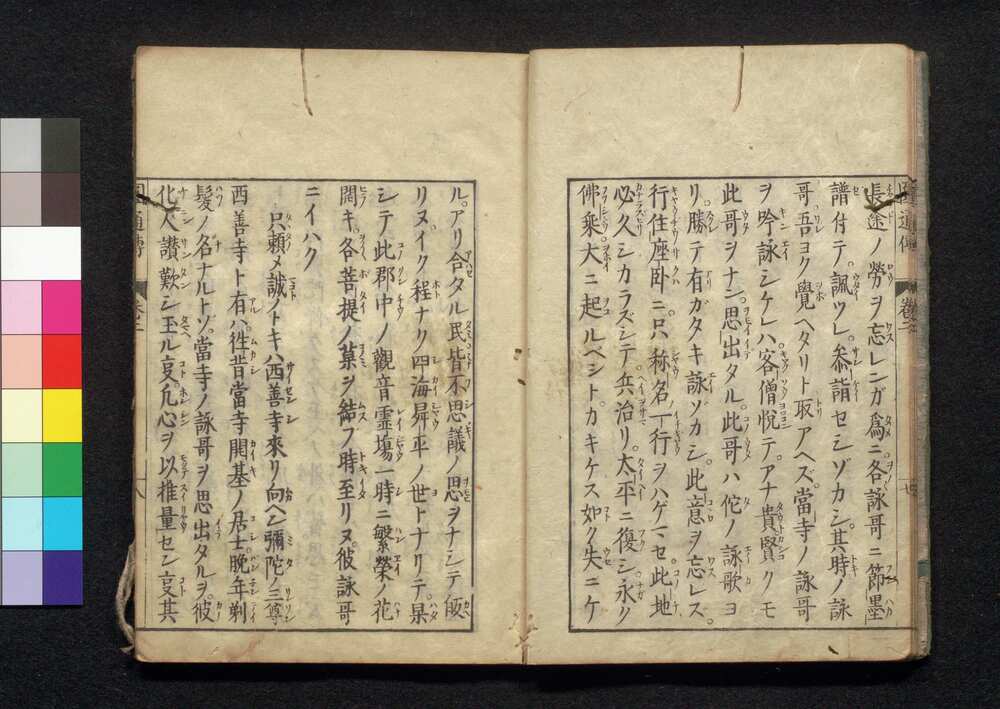 長途ノ勞ヲ忘レンガ爲ニ各詠哥ニ節墨
譜付テ。諷ツレ。參詣セシゾカシ。其時ノ詠
哥吾ヨク覺ヘタリト取アヘズ。當寺ノ詠哥
ヲ吟詠シケレハ客僧悅テ。アナ貴賢クモ
此哥ヲナン。思出タル。此哥ハ佗ノ詠歌ヨ
リ勝テ有ガタキ詠ゾカシ。此意ヲ忘レス。
行住座臥ニ。只称名ノ一行ヲハゲマセ。此地
必久シカラズシテ兵治リ。太平ニ復シ永ク
佛乘大ニ起ルベシト。カキケス如ク失ニケ
ル。アリ合タル民皆不思議ノ思ヲナシテ皈
リヌ。イク程ナク四海昇平ノ世トナリテ。果
シテ此郡中ノ觀音靈塲一時ニ繁榮ノ花
開キ。各菩提ノ菓ヲ結フ時至リヌ。彼詠哥
ニイハク
只頼メ誠ノトキハ西善寺來リ向ヘン彌陀ノ三尊
西善寺ト有ハ徃昔當寺開基ノ居士晩年剃
髮ノ名ナルトソ。當寺ノ詠哥ヲ思出タルヲ。彼
化人讃歎シ玉ル𡧃。凡心ヲ以推量セン𡧃其
圓通傳 卷三
十八